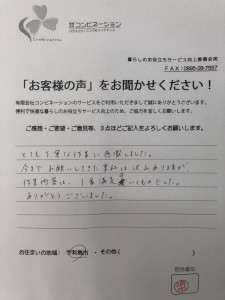 Combination
コンビネーション
暮らしのお役立ちサービス向上委員会宛
FAX:0895-28-7557
「お客様の声」をお聞かせください!
有限会社コンビネーションのサービスをご利用いただきまして誠にありがとうございます。
便利で快適な暮らしのお役立ちサービス向上のため、ご協力を宜しくお願いします。
ご感想・ご要望・ご意見等、3点ほどご記入をよろしくお願いします。
とても丁寧な作業に感激しました。
今までお願いしてきた業者は沢山ありますが、
作業内容は、1番満足いくものでした。
ありがとうございました。
お住まいの地域: 宇和島市 ・その他( )
担当者印